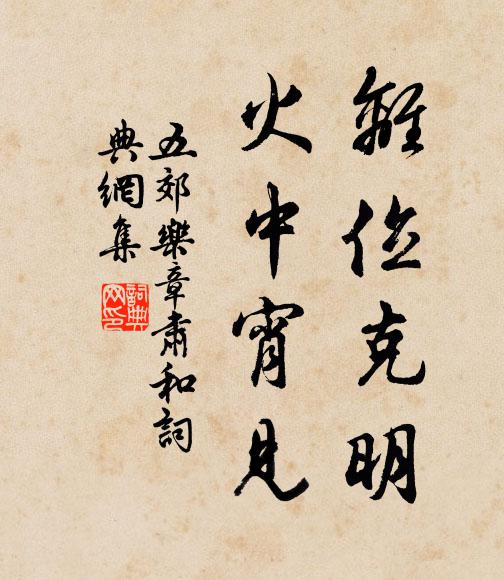 離位克明
火中宵見
五郊樂章肅和詞
典網集
詞典網印